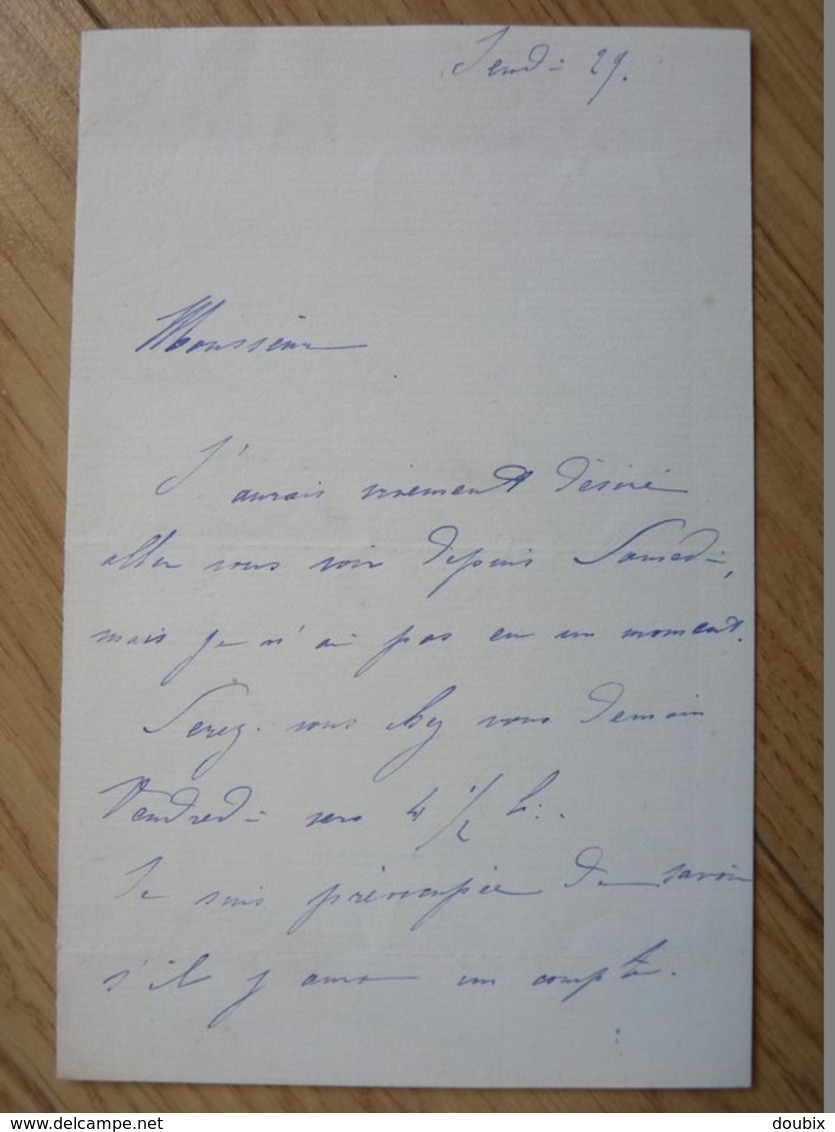 Jeudi 29.
Monsieur
J'aurais vivement désiré
aller vous voir depuis Samedi,
mais je n'ai pas eu un moment.
Serez-vous chez vous demain
Vendredi vers 4 1/2 h.
Je suis préoccupée de savoir
s'il y aura un compte.
www.delcampe.net
doubix